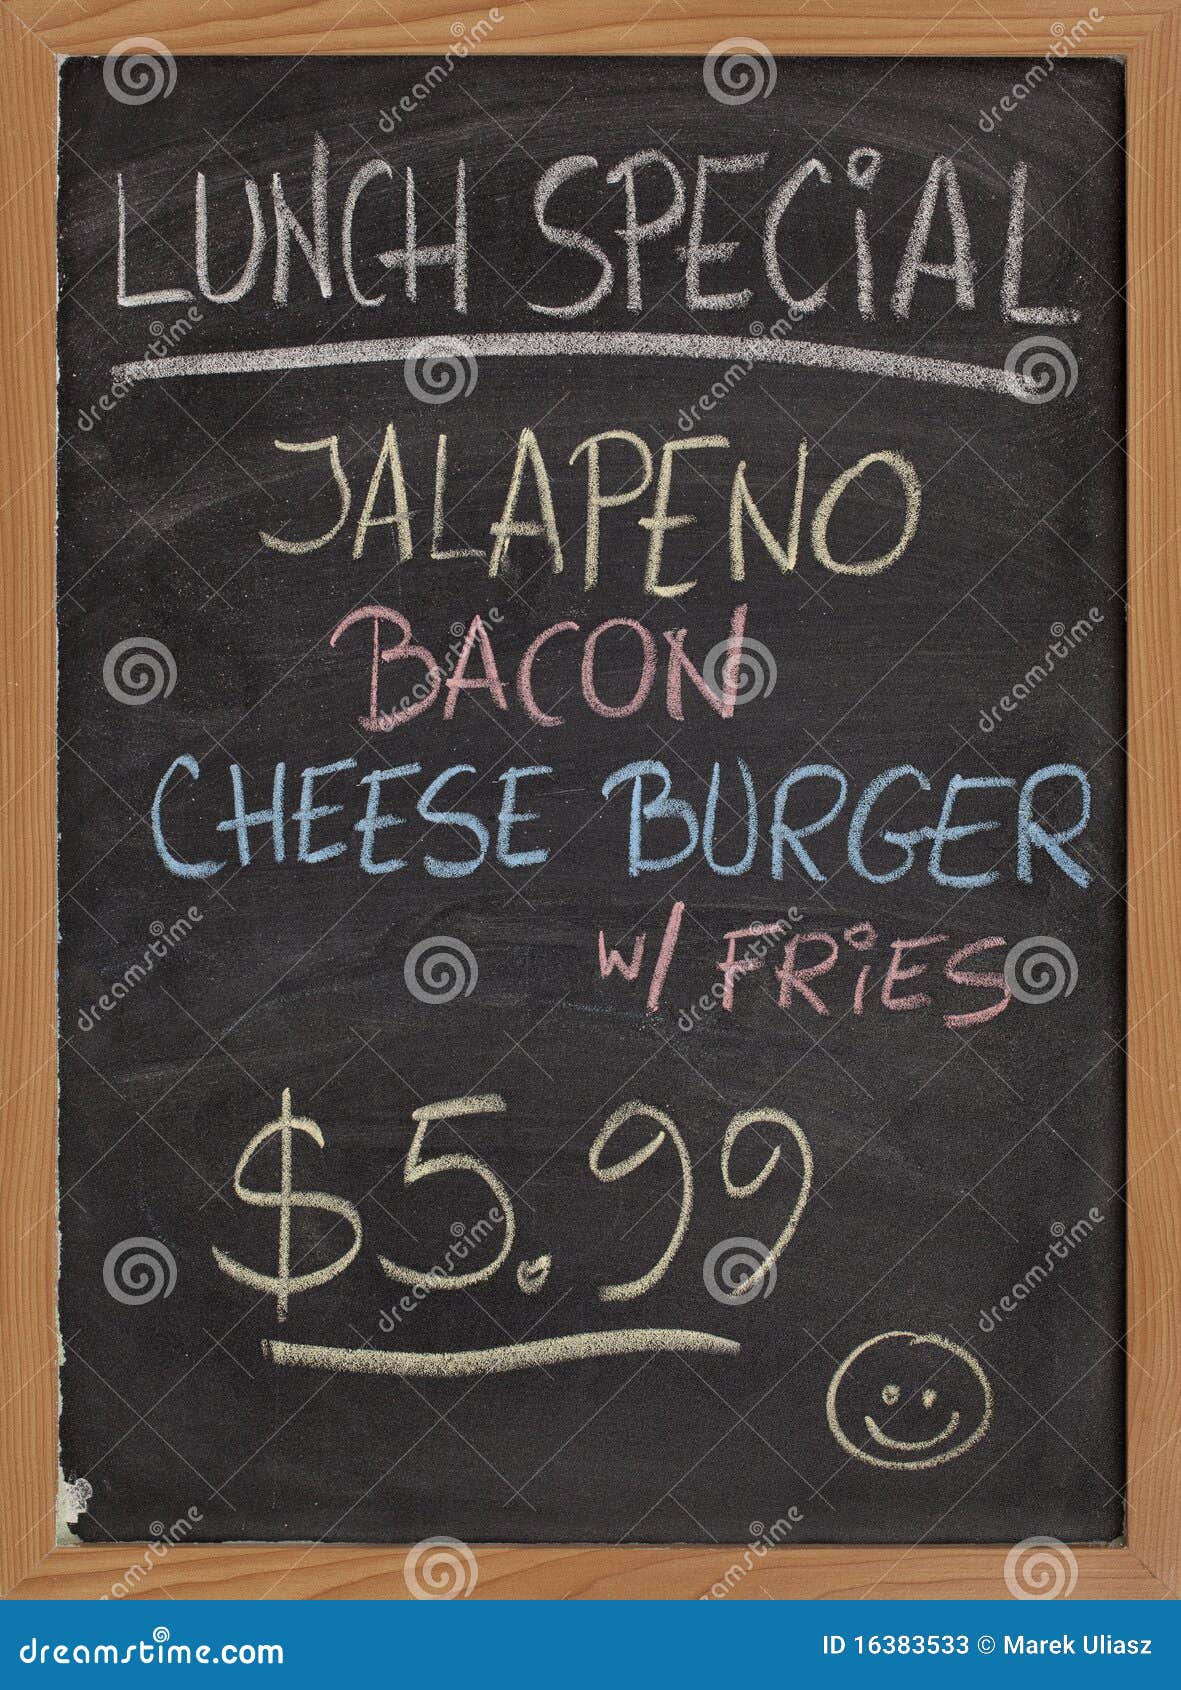 LUNCH SPECiAL
JALAPENO
BACON
CHEESE BURGER
w/ FRiES
$5.99
dreamstime.com
ID 16383533 © Marek Uliasz